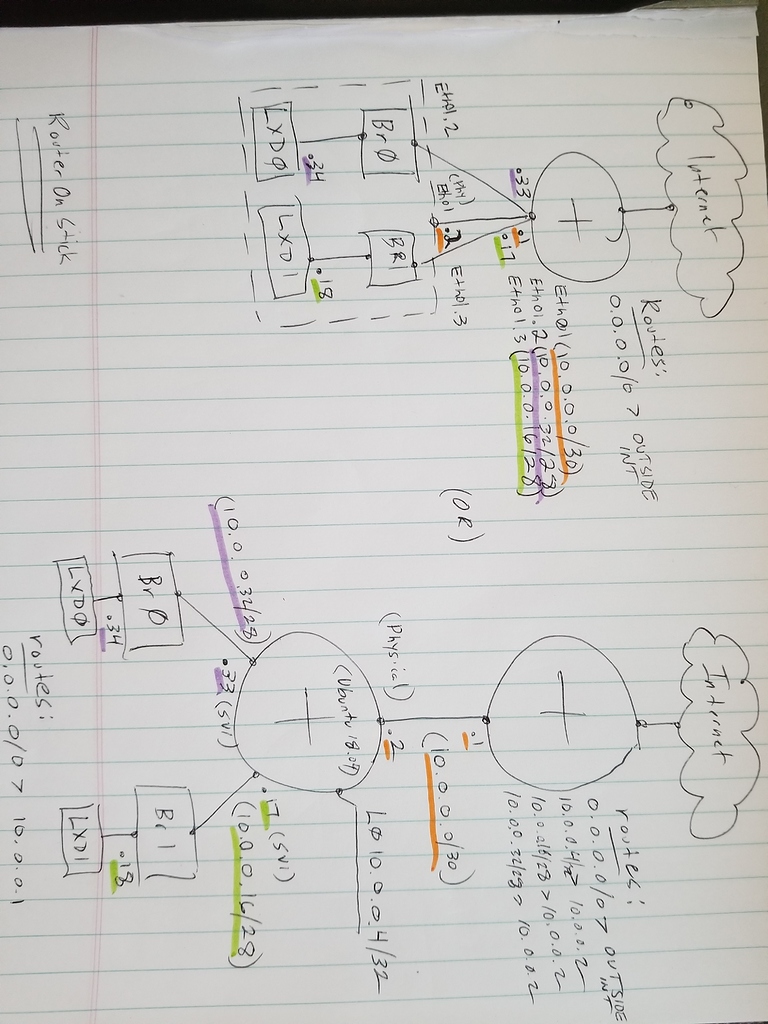 Internet
Routes:
0.0.0.0/0 > OUTSIDE
INT
.33
.1
.17
Eth01 (10.0.0.0/30)
Eth01.2 (10.0.0.32/28)
Eth01.3 (10.0.0.16/28)
Eth01.2
(Phy)
Eth01
.2
Eth01.3
BrØ
BR1
.34
.18
LXDØ
LXD1
Router On Stick
(OR)
Internet
routes:
0.0.0.0/0 > OUTSIDE
INT
10.0.0.4/32 > 10.0.0.2
10.0.0.16/28 > 10.0.0.2
10.0.0.32/28 > 10.0.0.2
.1
(10.0.0.0/30)
(Physical)
.2
(Ubuntu 18.04)
LØ 10.0.0.4/32
(10.0.0.32/28)
.33 (SVI)
.17 (SVI)
(10.0.0.16/28)
BrØ
Br1
.34
.18
LXDØ
LXD1
routes:
0.0.0.0/0 > 10.0.0.1